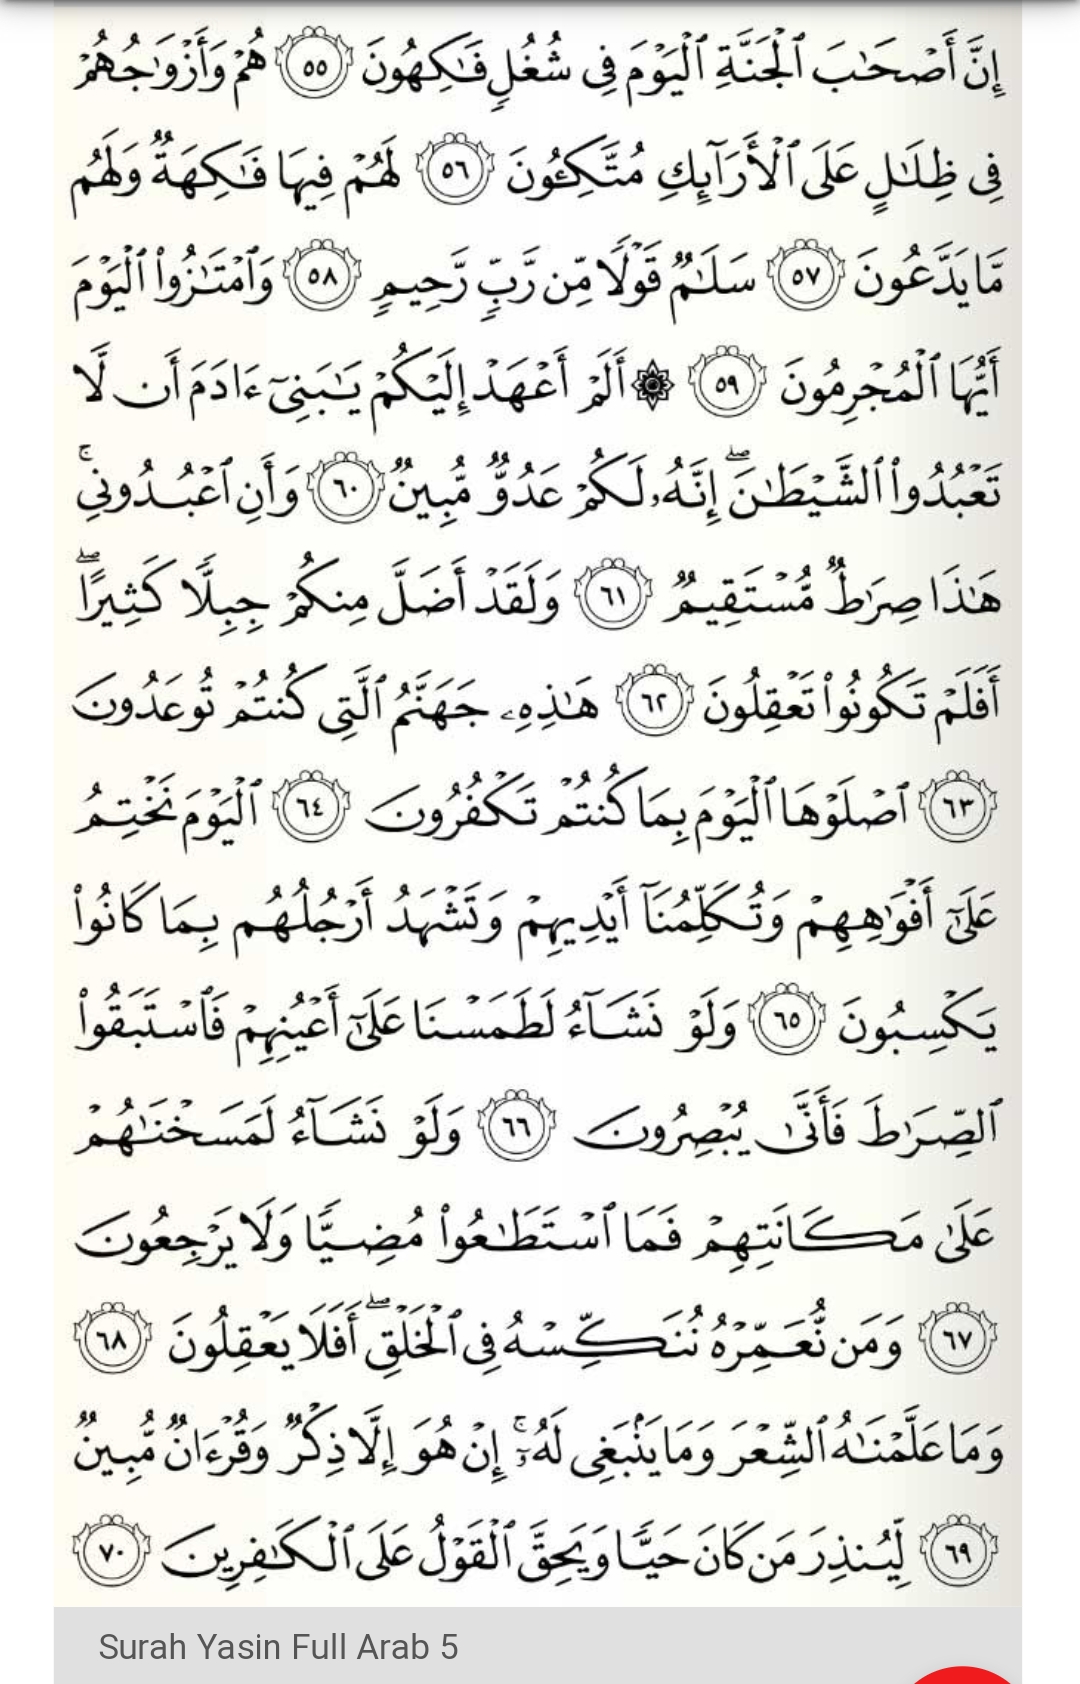 إِنَّ أَصْحَٰبَ ٱلْجَنَّةِ ٱلْيَوْمَ فِى شُغُلٍ فَٰكِهُونَ ٥٥ هُمْ وَأَزْوَٰجُهُمْ
فِى ظِلَٰلٍ عَلَى ٱلْأَرَآئِكِ مُتَّكِـُٔونَ ٥٦ لَهُمْ فِيهَا فَٰكِهَةٌ وَلَهُم
مَّا يَدَّعُونَ ٥٧ سَلَٰمٌ قَوْلًا مِّن رَّبٍّ رَّحِيمٍ ٥٨ وَٱمْتَٰزُوا۟ ٱلْيَوْمَ
أَيُّهَا ٱلْمُجْرِمُونَ ٥٩ ۞ أَلَمْ أَعْهَدْ إِلَيْكُمْ يَٰبَنِىٓ ءَادَمَ أَن لَّا
تَعْبُدُوا۟ ٱلشَّيْطَٰنَ ۖ إِنَّهُۥ لَكُمْ عَدُوٌّ مُّبِينٌ ٦٠ وَأَنِ ٱعْبُدُونِى ۚ
هَٰذَا صِرَٰطٌ مُّسْتَقِيمٌ ٦١ وَلَقَدْ أَضَلَّ مِنكُمْ جِبِلًّا كَثِيرًا ۖ
أَفَلَمْ تَكُونُوا۟ تَعْقِلُونَ ٦٢ هَٰذِهِۦ جَهَنَّمُ ٱلَّتِى كُنتُمْ تُوعَدُونَ
٦٣ ٱصْلَوْهَا ٱلْيَوْمَ بِمَا كُنتُمْ تَكْفُرُونَ ٦٤ ٱلْيَوْمَ نَخْتِمُ
عَلَىٰٓ أَفْوَٰهِهِمْ وَتُكَلِّمُنَآ أَيْدِيهِمْ وَتَشْهَدُ أَرْجُلُهُم بِمَا كَانُوا۟
يَكْسِبُونَ ٦٥ وَلَوْ نَشَآءُ لَطَمَسْنَا عَلَىٰٓ أَعْيُنِهِمْ فَٱسْتَبَقُوا۟
ٱلصِّرَٰطَ فَأَنَّىٰ يُبْصِرُونَ ٦٦ وَلَوْ نَشَآءُ لَمَسَخْنَٰهُمْ
عَلَىٰ مَكَانَتِهِمْ فَمَا ٱسْتَطَٰعُوا۟ مُضِيًّا وَلَا يَرْجِعُونَ
٦٧ وَمَن نُّعَمِّرْهُ نُنَكِّسْهُ فِى ٱلْخَلْقِ ۖ أَفَلَا يَعْقِلُونَ ٦٨
وَمَا عَلَّمْنَٰهُ ٱلشِّعْرَ وَمَا يَنۢبَغِى لَهُۥٓ ۚ إِنْ هُوَ إِلَّا ذِكْرٌ وَقُرْءَانٌ مُّبِينٌ
٦٩ لِّيُنذِرَ مَن كَانَ حَيًّا وَيَحِقَّ ٱلْقَوْلُ عَلَى ٱلْكَٰفِرِينَ ٧٠
Surah Yasin Full Arab 5